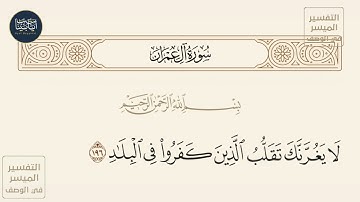 التفسير
الميسر
في الوصف
سُورَةُ آلِ عِمْرَان
بِسْمِ اللَّهِ الرَّحْمَٰنِ الرَّحِيمِ
لَا يَغُرَّنَّكَ تَقَلُّبُ ٱلَّذِينَ كَفَرُواْ فِي ٱلۡبِلَٰدِ ١٩٦
التفسير
الميسر
في الوصف